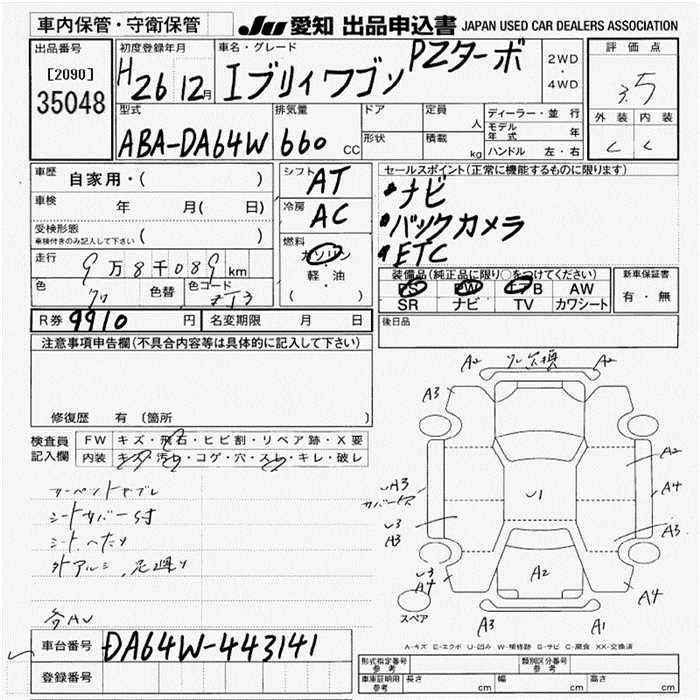 車内保管・守衛保管 JU 愛知 出品申込書 JAPAN USED CAR DEALERS ASSOCIATION
出品番号
[2090]
35048
初度登録年月
H26 12月
車名・グレード
エブリィワゴン PZターボ
2WD
・
4WD
評価点
3.5
外装 内装
C C
型式
ABA-DA64W
排気量
660 CC
ドア
形状
定員 人
積載 kg
ディーラー・並行
モデル年式 年
ハンドル 左・右
車歴 自家用・( )
車検 年 月( 日)
受検形態
車検付きのみ記入して下さい ( )
走行 9万8千089km
色 クロ 色替 色コード ZJ3
シフト AT
冷房 AC
燃料
ガソリン
・
軽・油
( )
セールスポイント(正常に機能するものに限ります)
・ナビ
・バックカメラ
・ETC
装備品(純正品に限り○をつけてください)
PS PW エアB AW
SR ナビ TV カワシート
新車保証書
有・無
R券 9910 円 名変期限 月 日
後日品
注意事項申告欄(不具合内容等は具体的に記入して下さい)
修復歴 有 〔箇所 〕
検査員記入欄
FW キズ・飛石・ヒビ割・リペア跡・X要
内装 キズ・汚れ・コゲ・穴・スレ・キレ・破レ
シートカバー付
シートヘたり
外アルミ、足廻り
A2 A2
A3
A2
A4
A3
A4
U1
A2
UA3
U3
A3
U3
A4
スペア
A3 A1
A-キズ E-エクボ U-凹み W-補修跡 S-サビ C-腐食 XX-交換済
車台番号 DA64W-443141
登録番号
形式指定番号 参考
類別区分番号 参考
車庫証明用 参考
長さ cm 幅 cm 高さ cm